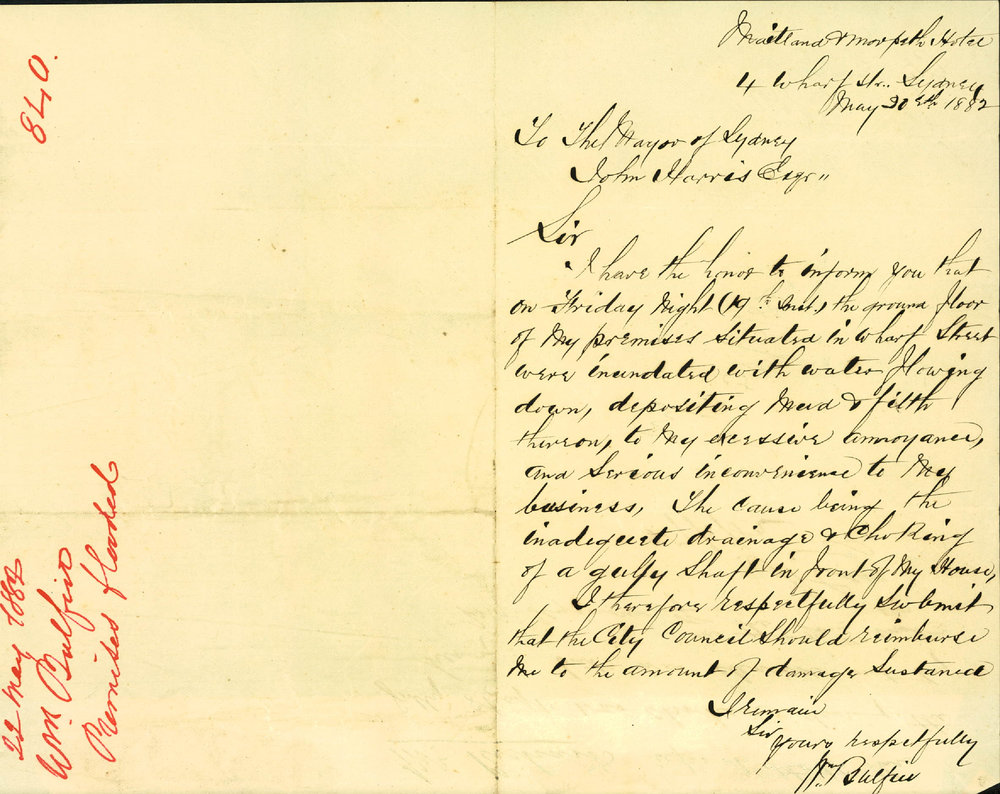 840.
22 May 1882
Wm Bulfin
Premises flooded
Maitland & Morpeth Hotel
4 Wharf Str. Sydney
May 20th 1882
To The Mayor of Sydney
John Harris Esqr"
Sir
I have the honor to inform you that
on Friday Night (19th Inst.) the ground floor
of My premises situated in Wharf Street
were inundated with water flowing
down, depositing Mud & filth
thereon, to My excessive annoyance,
and serious inconvenience to My
business, The cause being the
inadequate drainage & Choking
of a gully Shaft in front of My House,
I therefore respectfully Submit
that the City Council Should reimburse
Me to the amount of damage Sustained
I remain
Sir
yours respectfully
Wm Bulfin